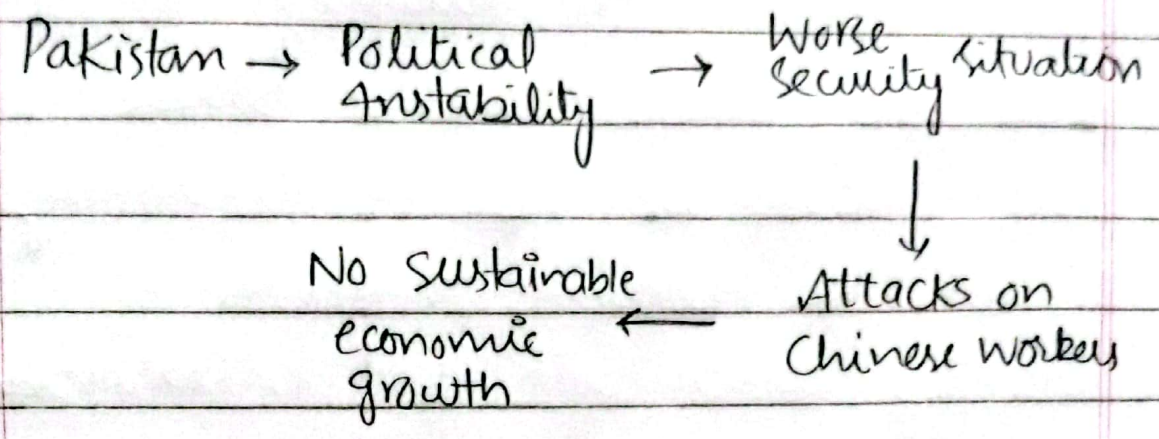 Pakistan → Political Instability → Worse Security situation
↓
Attacks on Chinese workers
←
No sustainable economic growth